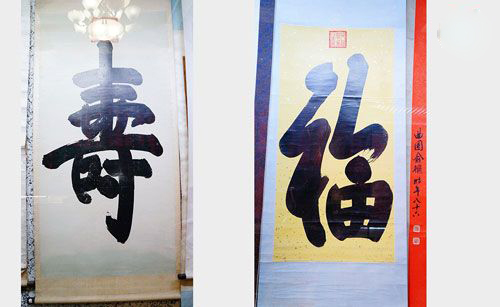 壽
福
曲園俞樾時年八十六